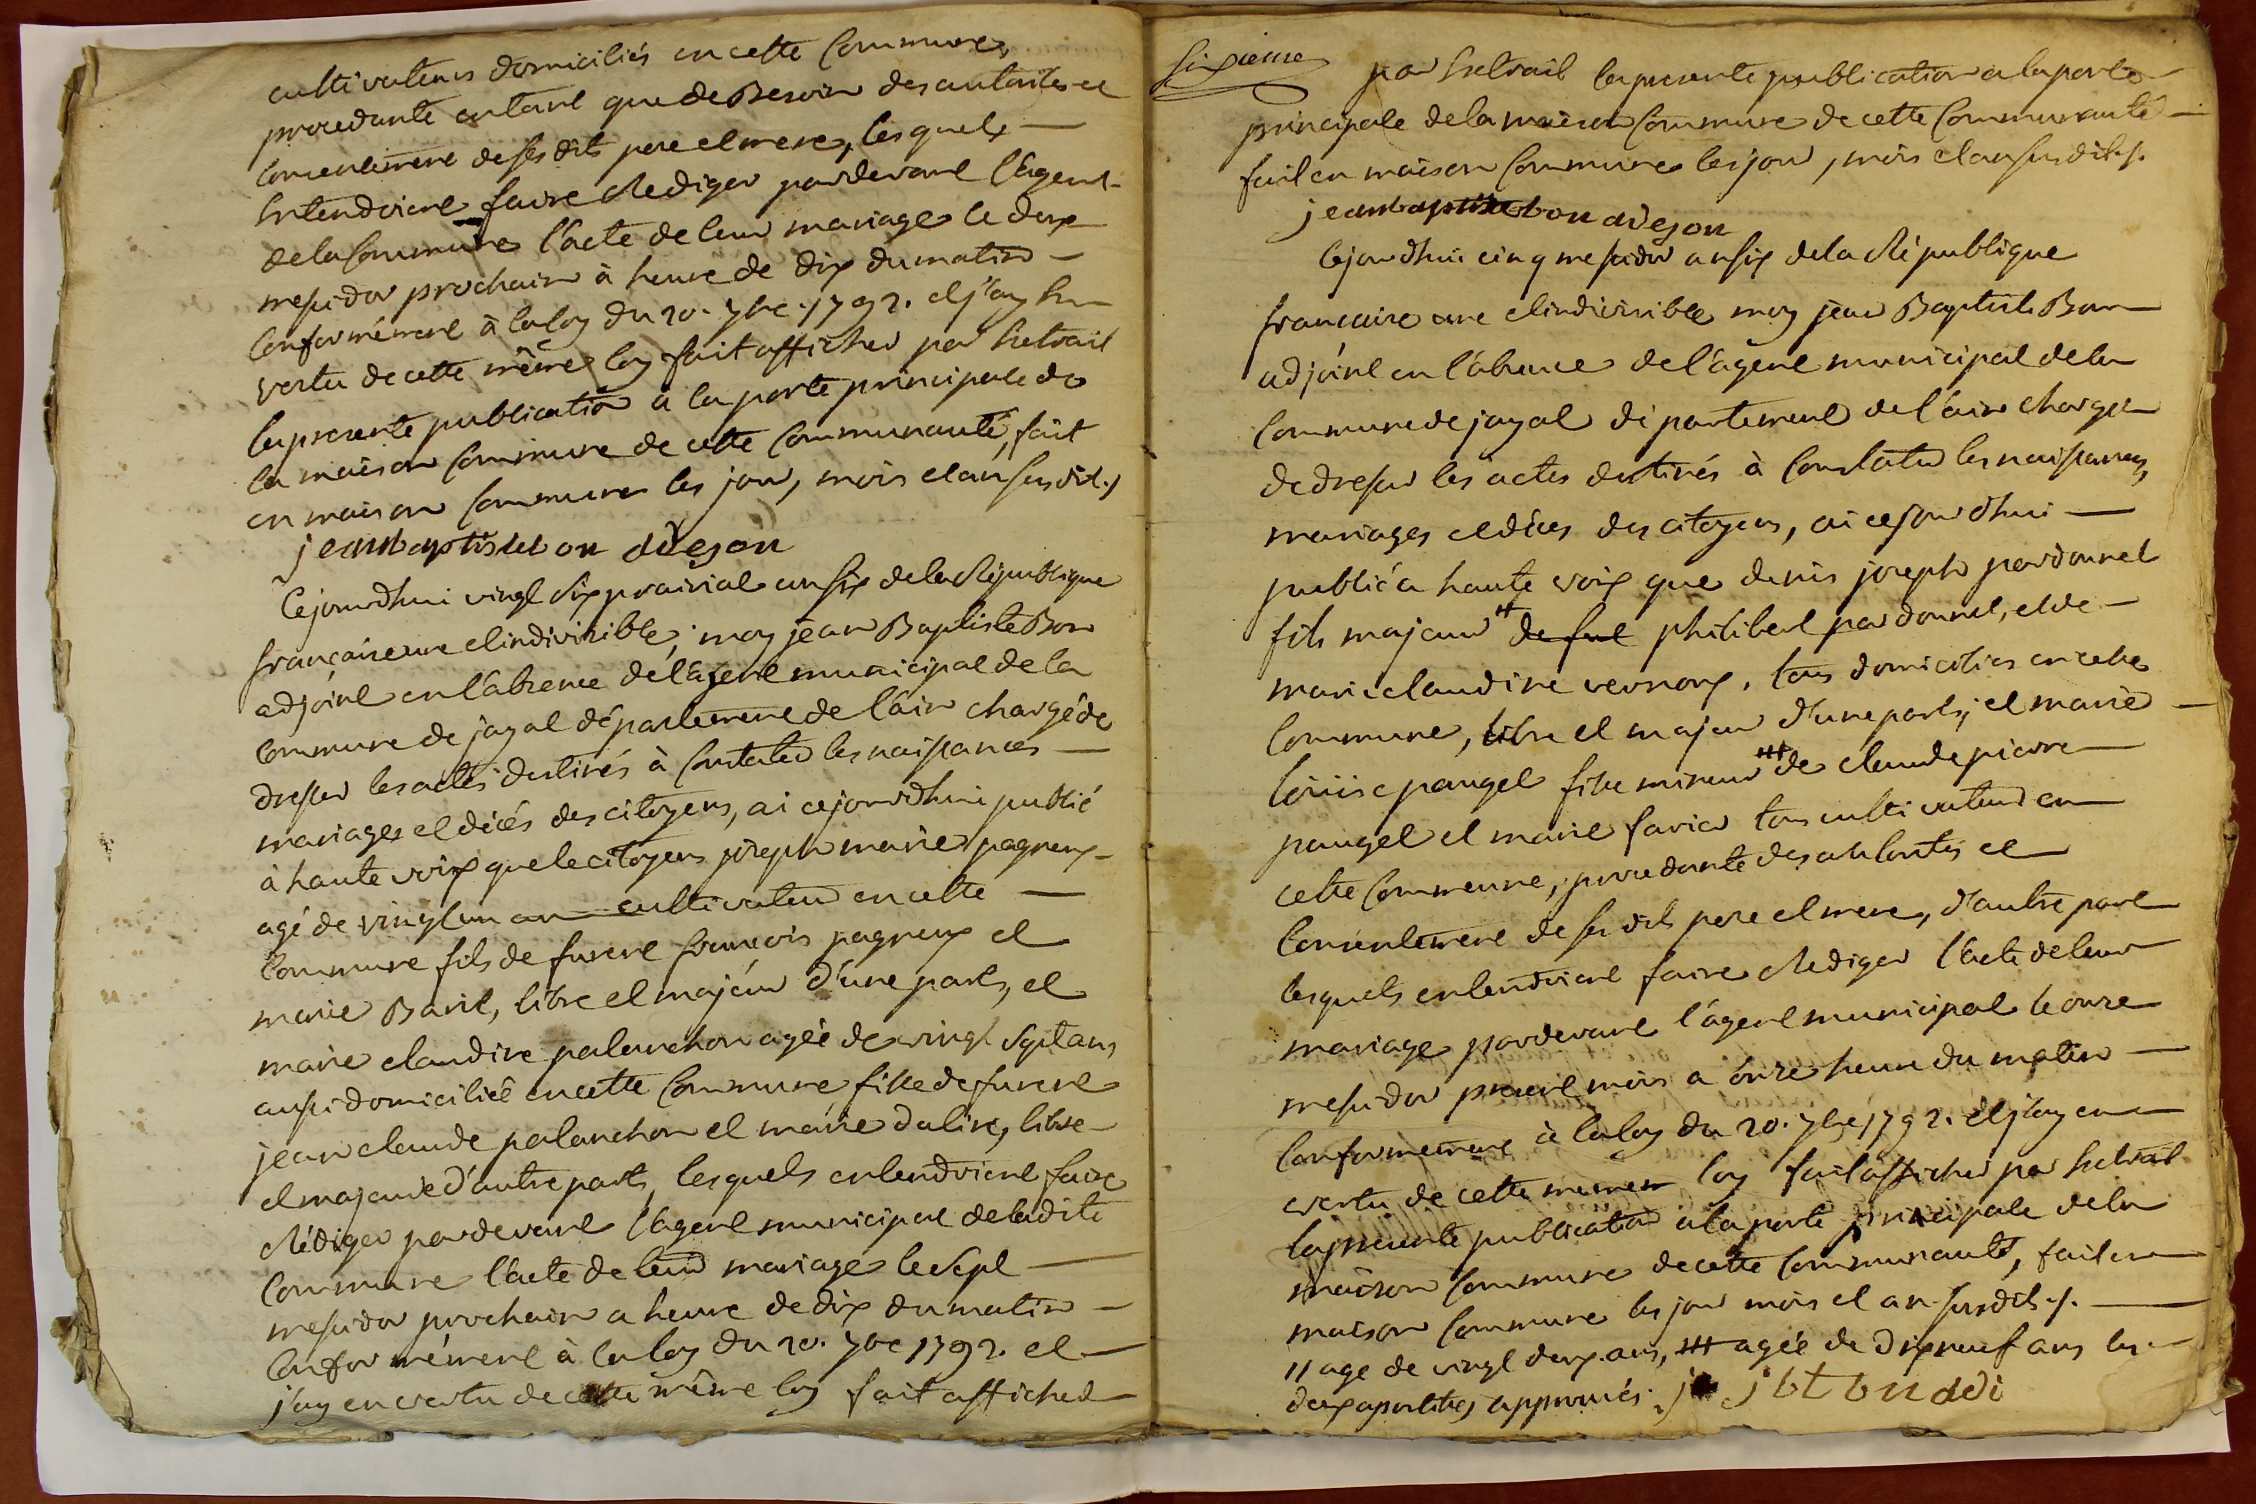 cultivateurs domiciliés en cette Commune,
procedante entant que de Besoin des autorités et
Consentement de ses dits pere et mere, lesquels
Entendoient faire Rediger pardevant l'agent
de la Commune l'acte de leur mariage le deux
messidor prochain à heure de dix du matin
Conformément à la loy du 20. 7bre. 1792. et j'ay En
vertu de cette même loy fait afficher par Extrait
la presente publication à la porte principale de
la maison Commune de cette Communauté, fait
en maison Commune les jour, mois et an susdit./.
jeanbaptistebon adegon
Cejourdhui vingt six prairial an six de la République
française une et indivisible, moy jean Baptiste Bon
adjoint en l'absence de l'agent municipal de la
Commune de jayal département de l'ain chargé de
dresser les actes destinés à Constater les naissances
mariages et décès des citoyens, ai cejourdhui publié
à haute voix que le citoyen joseph marie pagneux
agé de vingt un an cultivateur en cette
Commune fils de furent françois pagneux et
marie Baril, libre et majeur d'une part, et
marie claudine palanchon agée de vingt sept ans
aussi domiciliée en cette Commune fille de furent
jean claude palanchon et marie dalin, libre
et majeure d'autre part, lesquels entendoient faire
Rédiger pardevant l'agent municipal de ladite
Commune l'acte de leur mariage le sept
messidor prochain a heure de dix du matin
Conformément à la loy du 20. 7bre 1792. et
j'ay en vertu de cette même loy fait afficher
sixieme
par Extrait la presente publication a la porte
principale de la maison Commune de cette Communauté
fait en maison Commune les jour, mois et an susdit./.
jeanbaptistebon adegon
Cejourdhui cinq messidor an six de la République
francaise une et indivisible moy jean Baptiste Bon
adjoint en l'absence de l'agent municipal de la
Commune de jayal département de l'ain chargé
de dresser les actes destinés à Constater les naissances,
mariages et décès des citoyens, ai cejourdhui
publié a haute voix que denis joseph pardonnet
fils majeur # de fut philibert pardonnet, et de
marie claudine vernoux, tous domiciliés en cette
Commune, libre et majeur d'une part; et marie
louise paugel fille mineur ### de claude pierre
paugel et marie favier tous cultivateurs en
cette Commune, procedante des autorités et
Consentement de ses dits pere et mere, d'autre part
lesquels entendoient faire Rediger l'acte de leur
mariage pardevant l'agent municipal le onze
messidor present mois a onze heure du matin
Conformement à la loy du 20. 7bre 1792. et j'ay en
vertu de cette meme loy fait afficher par Extrait
la presente publication a la porte principale de la
maison Commune de cette Communauté, fait en
maison Commune les jour mois et an susdit./.
# age de vingt deux ans, ### agée de dix neuf ans les
deux apostilles approuvés. j bt bn adi